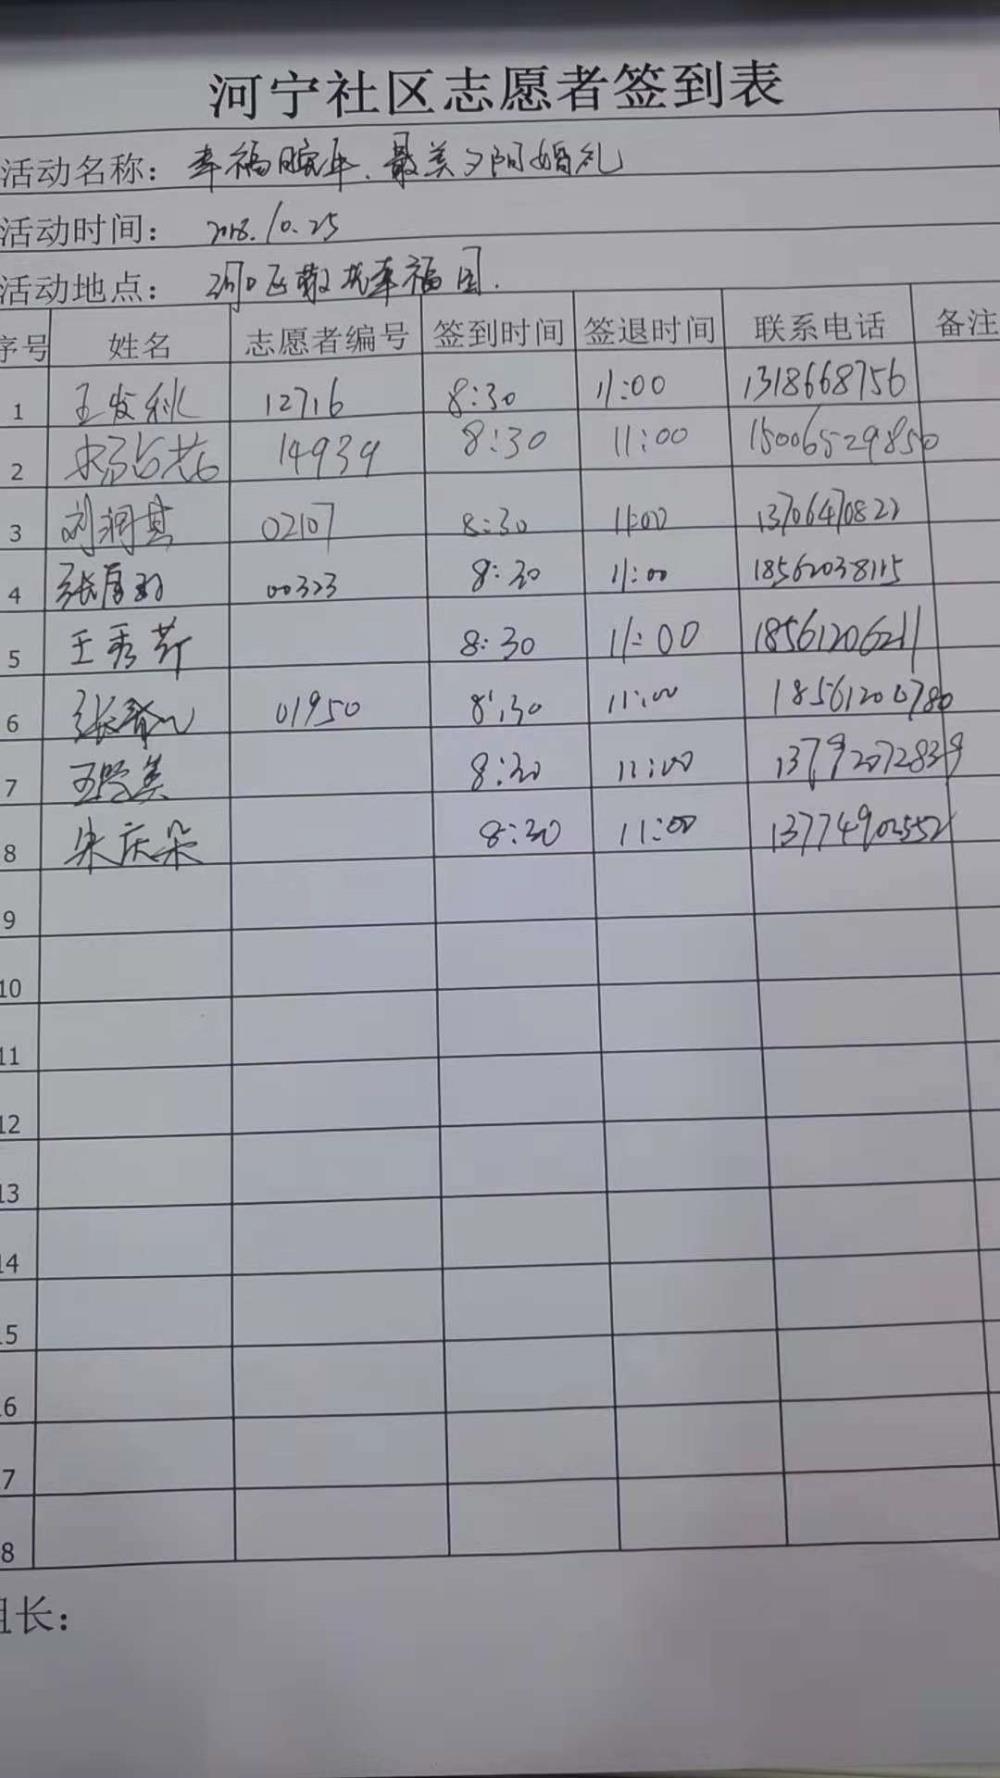 河宁社区志愿者签到表
活动名称: 幸福晚年.最美夕阳婚礼
活动时间: 2018.10.25
活动地点: 河口区敬老幸福园.
序号 姓名 志愿者编号 签到时间 签退时间 联系电话 备注
1 王发秋 12716 8:30 11:00 1318668756
2 14939 8:30 11:00 15006529850
3 刘润其 02107 8:30 11:00 13706470822
4 00323 8:30 11:00 18562038115
5 王秀芹 8:30 11:00 18561206211
6 01950 8:30 11:00 18561200780
7 8:30 11:00 13792072839
8 宋庆朵 8:30 11:00 13774902552
9
10
11
12
13
14
5
6
7
8
组长: